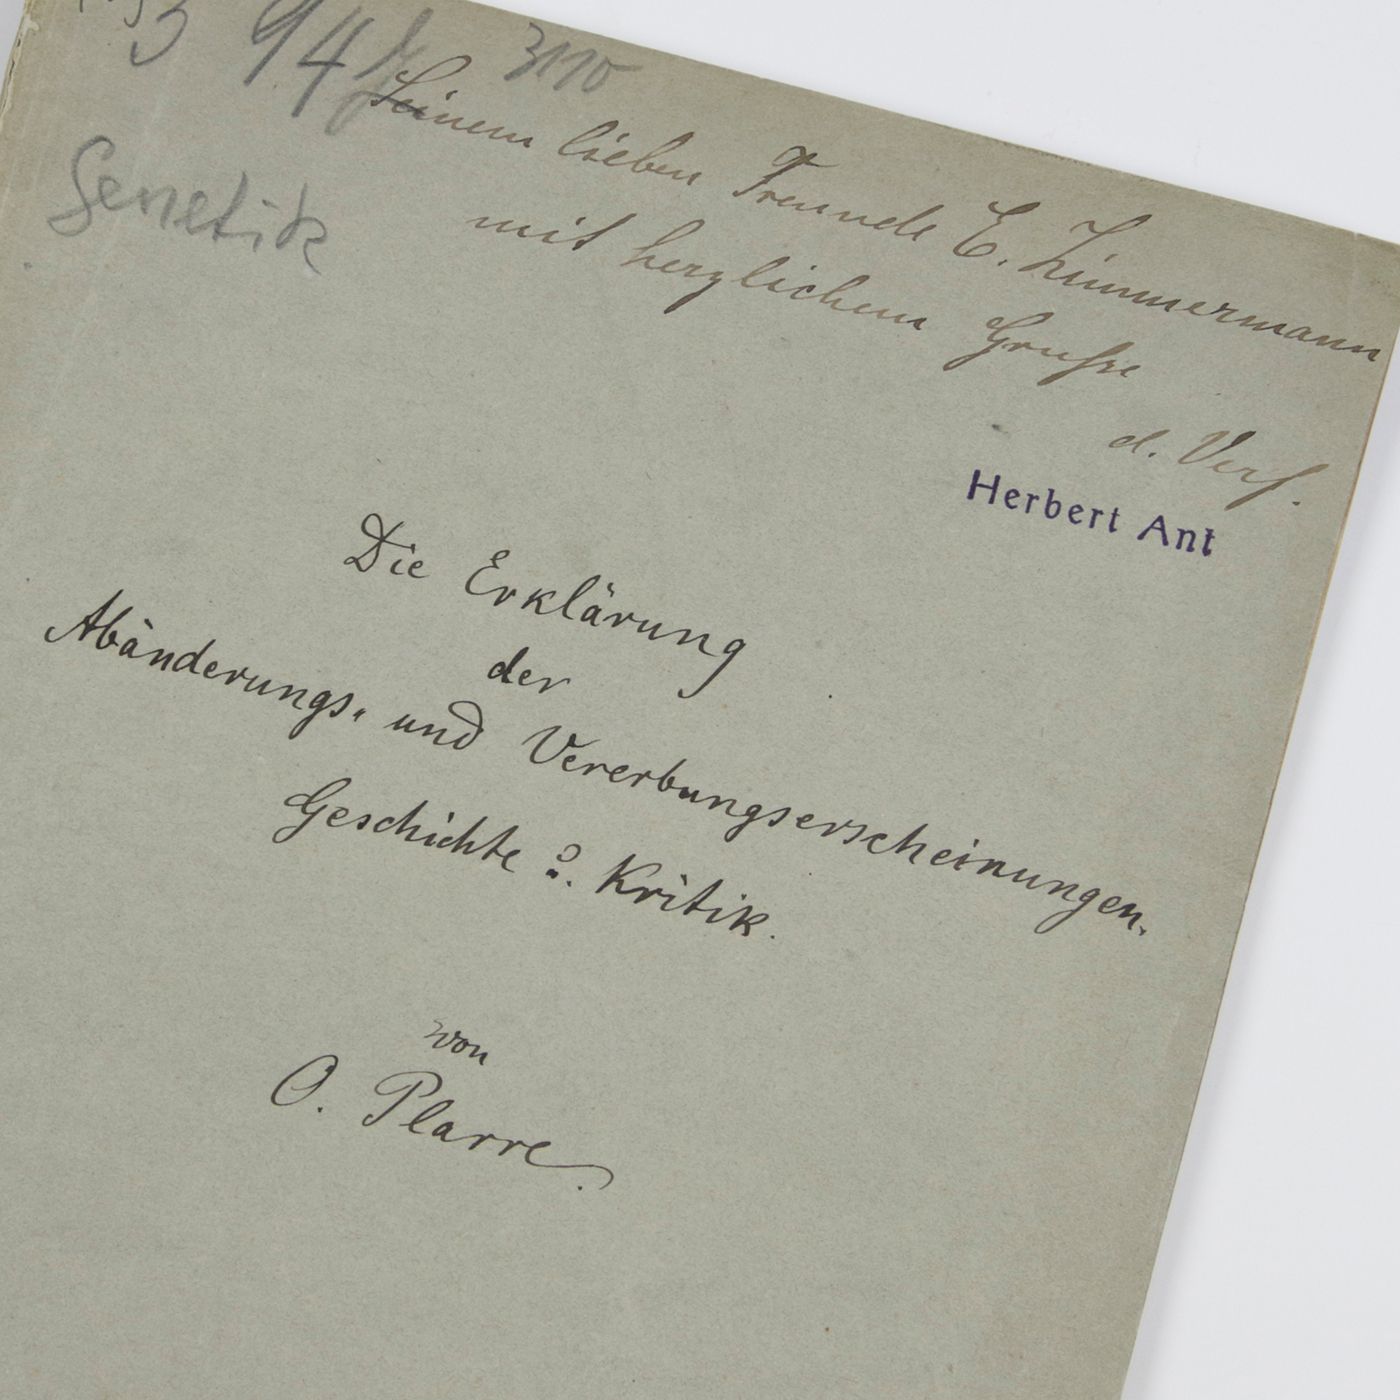 94
3110
Seinem lieben Freunde E. Zimmermann
Genetik
mit herzlichem Grusse
d. Verf.
Herbert Ant
Die Erklärung
der
Abänderungs- und Vererbungserscheinungen.
Geschichte u. Kritik.
von
O. Plarre.